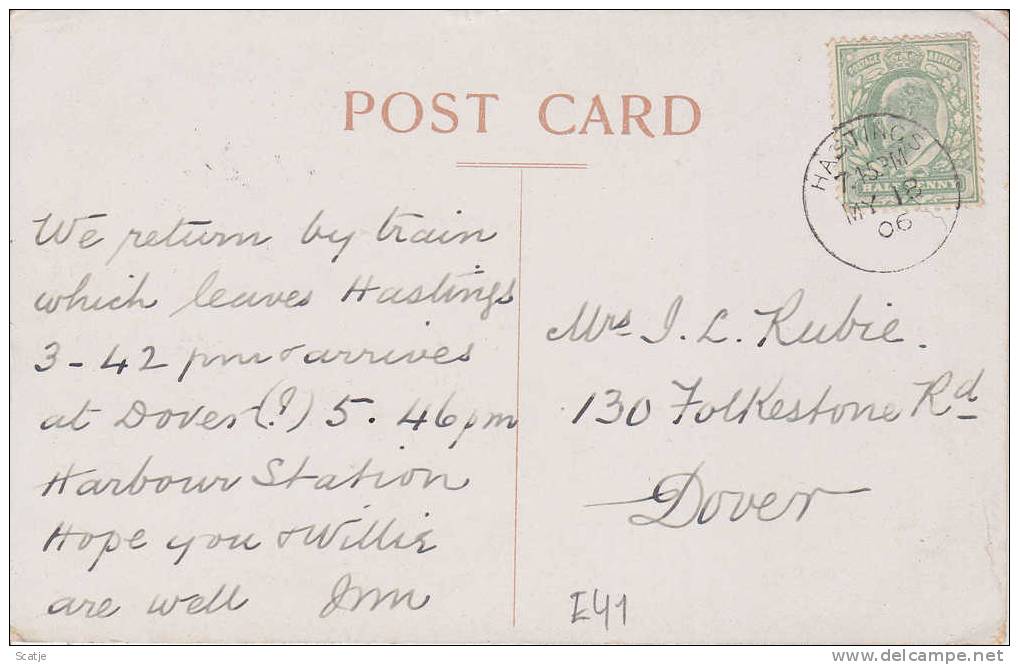 POST CARD
POSTAGE REVENUE
HALFPENNY
HASTINGS
7.15PM
MY 18
06
We return by train
which leaves Hastings
3-42 pm & arrives
at Dover (?) 5. 46 pm
Harbour Station
Hope you & Willie
are well
Mrs J. L. Rubie.
130 Folkestone Rd
Dover
E41
Scatje
www.delcampe.net